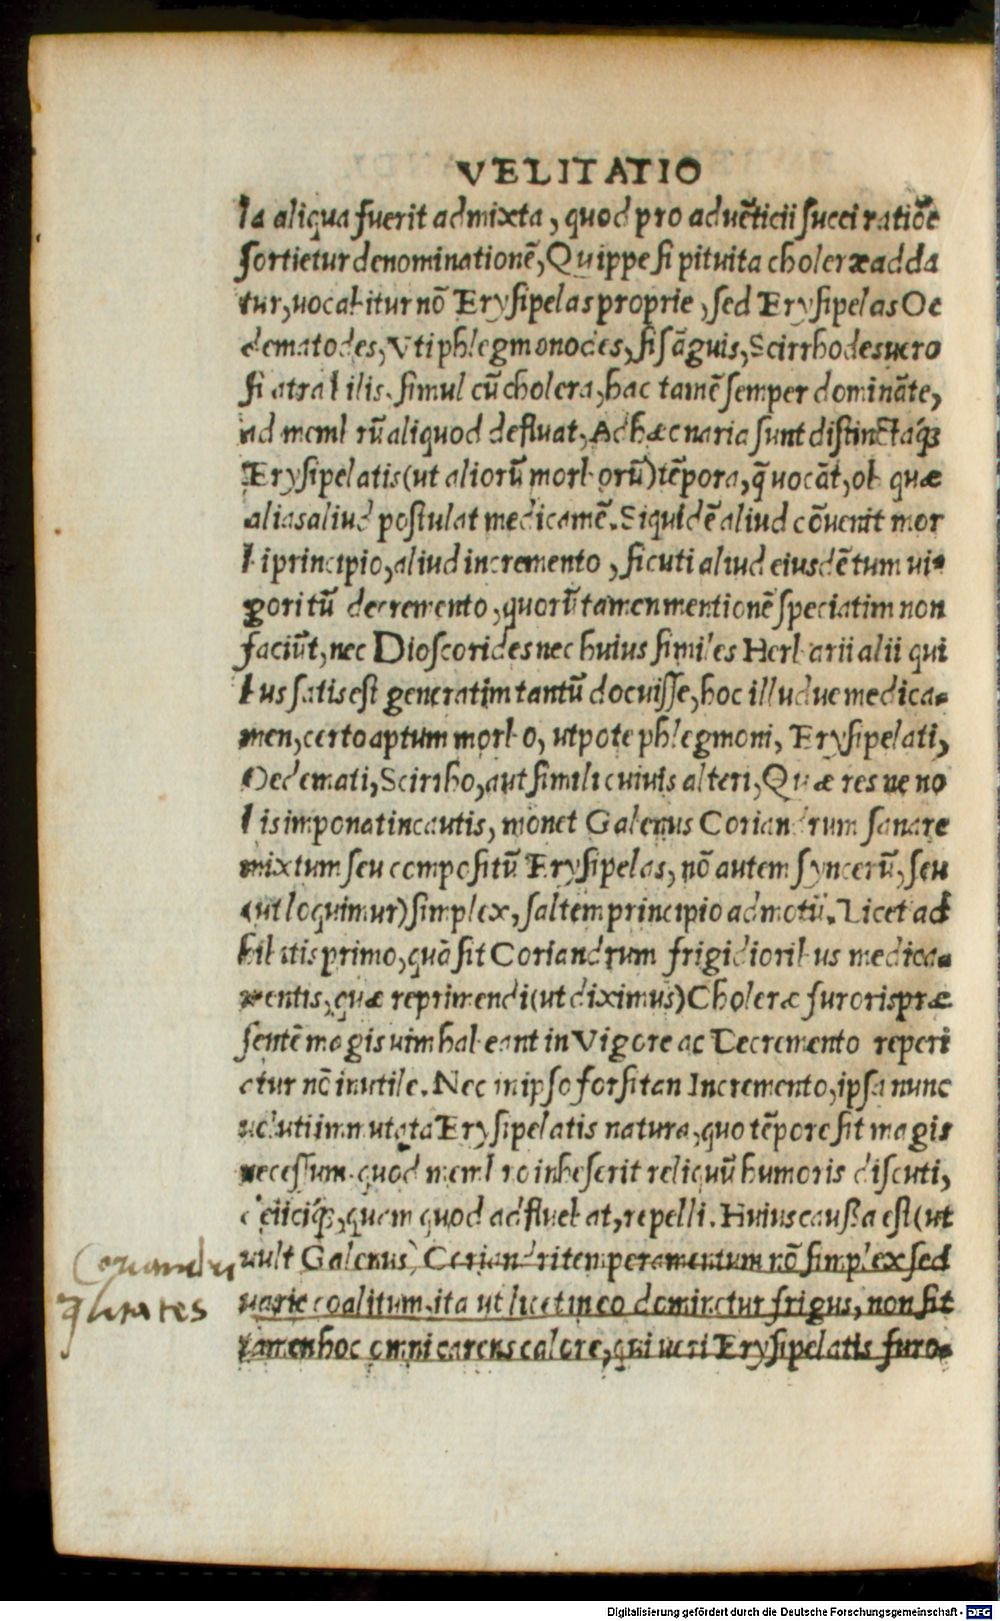 VELITATIO
la aliqua fuerit admixta, quod pro advẽticii succi ratiõe
sortietur denominationẽ, Quippe si pituita choleræ adda
tur, uocabitur nõ Erysipelas proprie, sed Erysipelas Oe
dematodes, Vti phlegmonodes, si sãguis, Scirrhodes uero
si atra bilis. simul cũ cholera, hac tamẽ semper dominãte,
ad membrũ aliquod defluat, Ad hæc uaria sunt distinctaq́;
Erysipelatis (ut aliorũ morborũ) tẽpora, q̃ uocãt, ob quæ
alias aliud postulat medicamẽ. Siquidẽ aliud cõuenit mor
bi principio, aliud incremento, sicuti aliud eiusdẽ tum ui-
gori tũ decremento, quorũ tamen mentionẽ speciatim non
faciũt, nec Dioscorides nec huius similes Herbarii alii qui
bus satis est generatim tantũ docuisse, hoc illudue medica-
men, certo aptum morbo, utpote phlegmoni, Erysipelati,
Oedemati, Scirrho, aut simili cuiuis alteri, Quæ res ne no
bis imponat incautis, monet Galenus Coriandrum sanare
mixtum seu compositũ Erysipelas, nõ autem syncerũ, seu
(ut loquimur) simplex, saltem principio admotũ. Licet ad
hibitis primo, quã sit Coriandrum frigidioribus medica-
mentis, quæ reprimendi (ut diximus) Choleræ furoris præ
sentẽ magis uim habeant in Vigore ac Decremento reperi
etur nõ inutile. Nec in ipso forsitan Incremento, ipsa nunc
ueluti immutata Erysipelatis natura, quo tẽpore sit magis
necessum. quod membro inheserit reliquũ humoris discuti,
eiiciq́;, quam quod adfluebat, repelli. Huius caussa est (ut
uult Galenus) Coriandri temperamentum nõ simplex sed
uarie coalitum, ita ut licet in eo dominetur frigus, non sit
tamen hoc omni carens calore, qui ueri Erysipelatis furo-
Coriandri
q̃litates
Digitalisierung gefördert durch die Deutsche Forschungsgemeinschaft - DFG